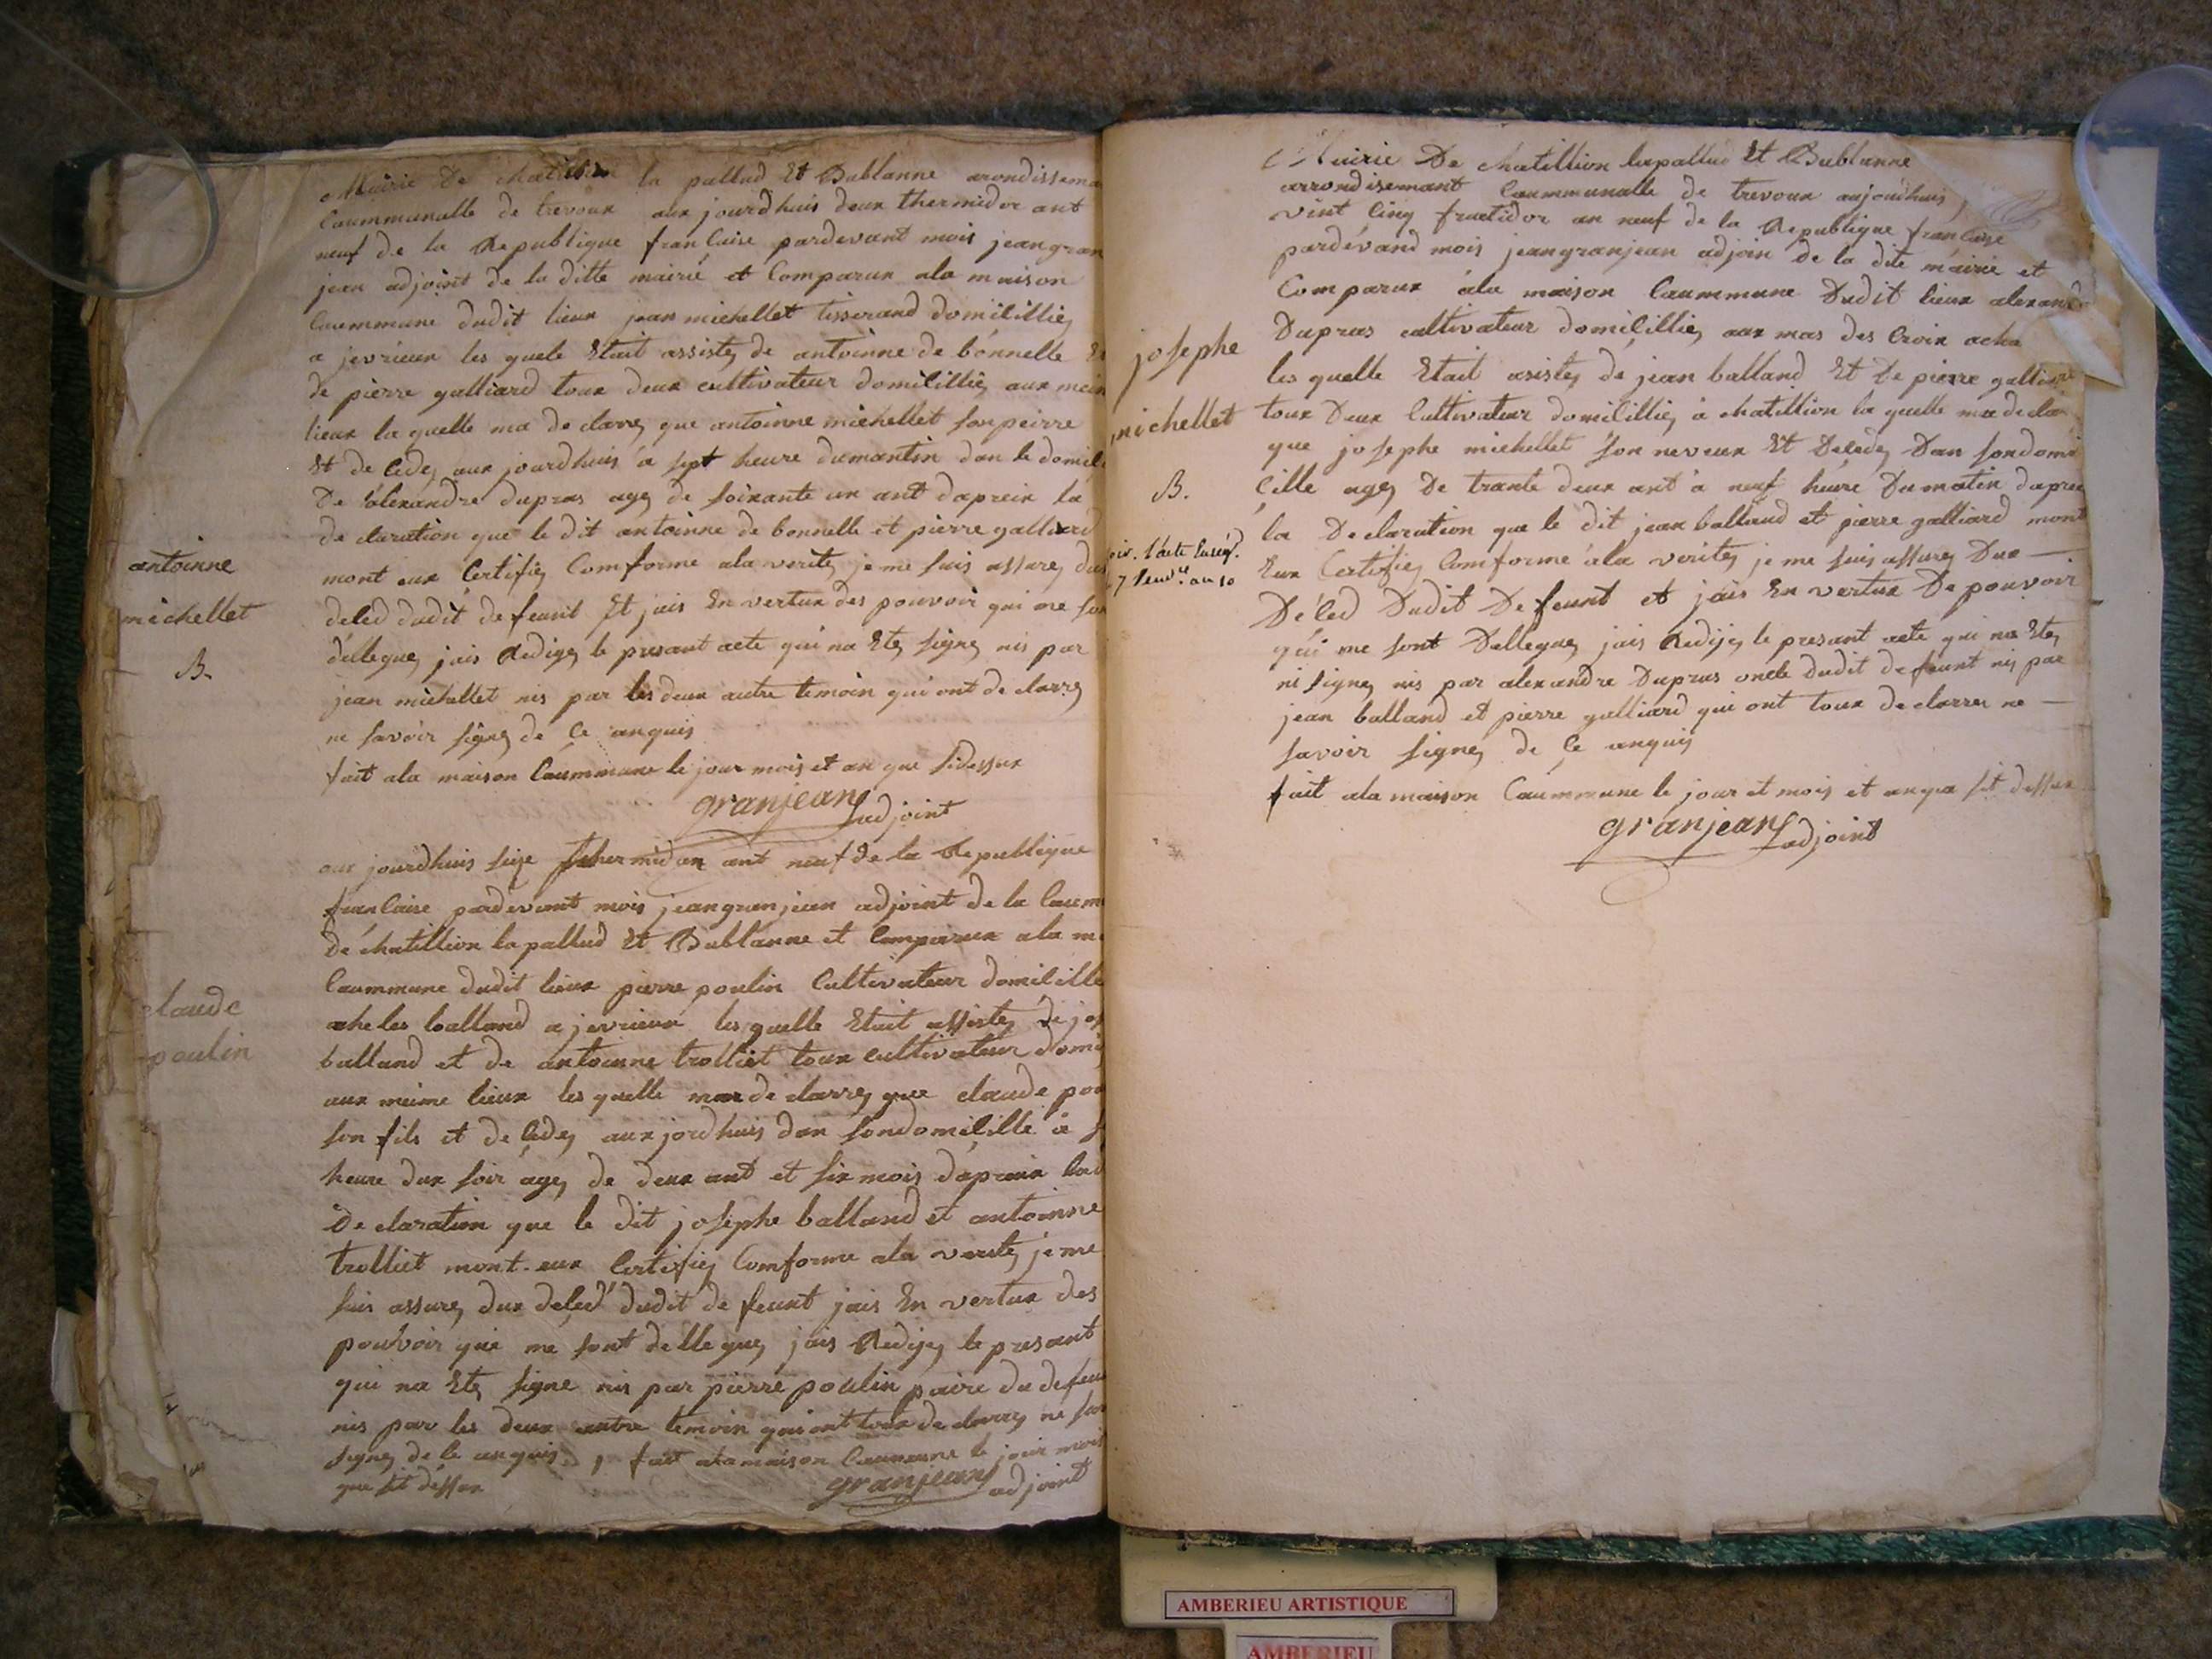 Mairie De chatillion la pallud Et Bublanne arondissema
Caummunalle de trevoux aux jourdhuis deux thermidor ant
neuf de la Republique franCaise pardevant mois jean gran
jean adjoint de la ditte mairie et Comparux ala maison
Caummune dudit lieux jean michellet tisserand domiCilliez
a jevrieux les quele Etait assistez de antoinne de bonnelle Et
de pierre galliard toux deux cultivateur domiCilliez aux meim
lieux la quelle ma de clarrez que antoinne michellet son peirre
Et de Cedez aux jourdhuis a sept heure dumantin dan le domiCi
De alexandre dupras agez de soixante un ant dapreix la
de claration que le dit antoinne de bonnelle et pierre galliard
antoinne
michellet
B.
mont eux Certifiez Comforme ala veritez je me suis assurez dux
deCed dudit defeunt Et jais En vertux des pouvoir qui me son
delleguez jais Redigez le presant acte qui na Etez signez nis par
jean michellet nis par les deux autre temoin qui ont de clarrez
ne savoir signez de Ce anquis
fait ala maison Caummune le jour mois et an que sidessux
granjean adjoint
aux jourdhuis seize thermidor ant neuf de la Republique
franCaise pardevant mois jean granjean adjoint de la Caum
de chatillion la pallud Et Bublanne et Comparux ala m
Caummune dudit lieux pierre poulin Cultivateur domiCille
claude
poulin
ache les balland a jevrieux les quelle Etait assistez de jos
balland et de antoinne trolliet toux cultivateur domi
aux meime lieux les quelle ma de clarrez que claude pou
son fils et de Cedez aux jordhuis dan son domiCille a s
heure dux soir agez de deux ant et six mois dapreix la
De claration que le dit josephe balland et antoinne
trolliet mont eux Certifiez Comforme ala veritez je me
suis assurez dux deCed dudit de feunt jais En vertux des
pouvoir qui me sont delleguez jais Redijez le presant
qui na Etez signe nis par pierre poulin paire du defeu
nis par les deux autre temoin qui ont toux de clarrez ne sav
signez de Ce anquis, fait ala maison Caummune le jour mois
que sit dessux
granjean adjoint
Mairie De chatillion lapallud Et Bublanne
arrondisemant Caummunalle de trevoux aujourdhuis
vint Cinq fructidor an neuf de la Republique franCaise
pardevand mois jean granjean adjoin de la dite mairie et
Comparux ala maison Caummune Dudit lieux alexand
Dupras cultivateur domiCilliez aux mas des Croix acha
josephe
michellet
B.
les quelle Etait asistez de jean balland Et De pierre galliard
toux Deux Cultivateur domiCilliez a chatillion la quelle ma de clar
que josephe michellet son neveux Et DeCedez Dan son domi
Cille agez De trante deux ant a neuf heure Du matin dapreix
la Declaration que le dit jean balland et pierre galliard mont
Eux Certifiez Comforme ala veritez je me suis assurez Dux
7 an 10
DeCed Dudit Defeunt et jais En vertux De pouvoir
qui me sont Delleguez jais Redijez le presant acte qui na Etez
ni signez nis par alexandre Dupras oncle Dudit defeunt nis par
jean balland et pierre galliard qui ont toux de clarrez ne
savoir signez de Ce anquis
fait ala maison Caummune le jour et mois et an que sit dessux
granjean adjoint
AMBERIEU ARTISTIQUE
AMBERIEU